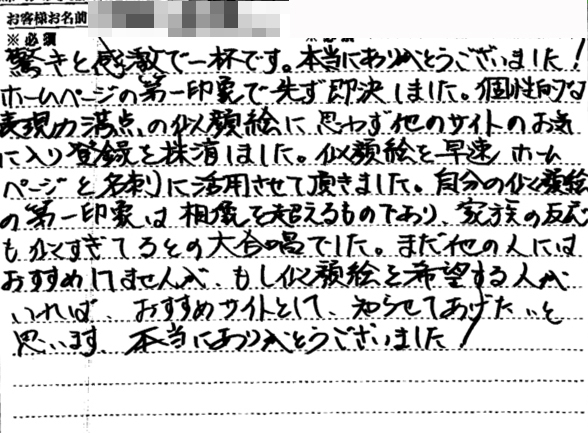 お客様お名前
※必須 ※必須
驚きと感激で一杯です。本当にありがとうございました!
ホームページの第一印象で先ず即決しました。個性的な
表現力満点の似顔絵に思わず他のサイトのお気
に入り登録を抹消しました。似顔絵を早速ホーム
ページと名刺に活用させて頂きました。自分の似顔絵
の第一印象は想像を超えるものであり、家族の反応
も似すぎてるとの大合唱でした。まだ他の人には
おすすめしてませんが、もし似顔絵を希望する人が
いれば、おすすめサイトとして、知らせてあげたいと
思います、本当にありがとうございました!